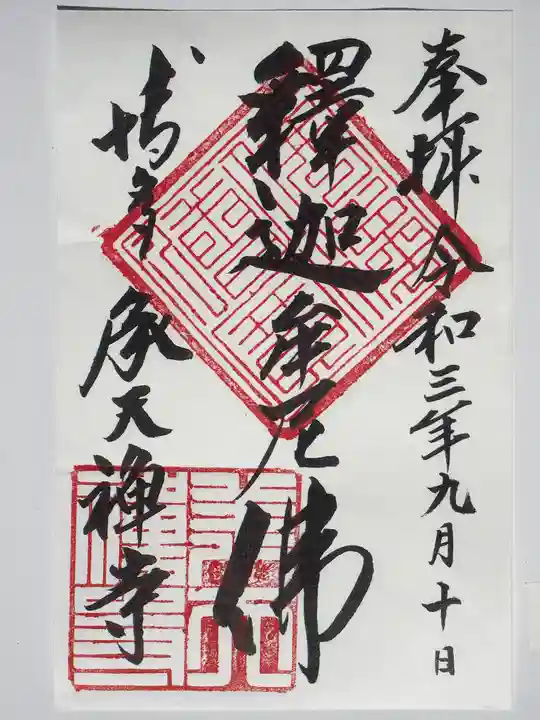 奉拝 令和三年九月十日
釋迦牟尼佛
博多 承天禅寺